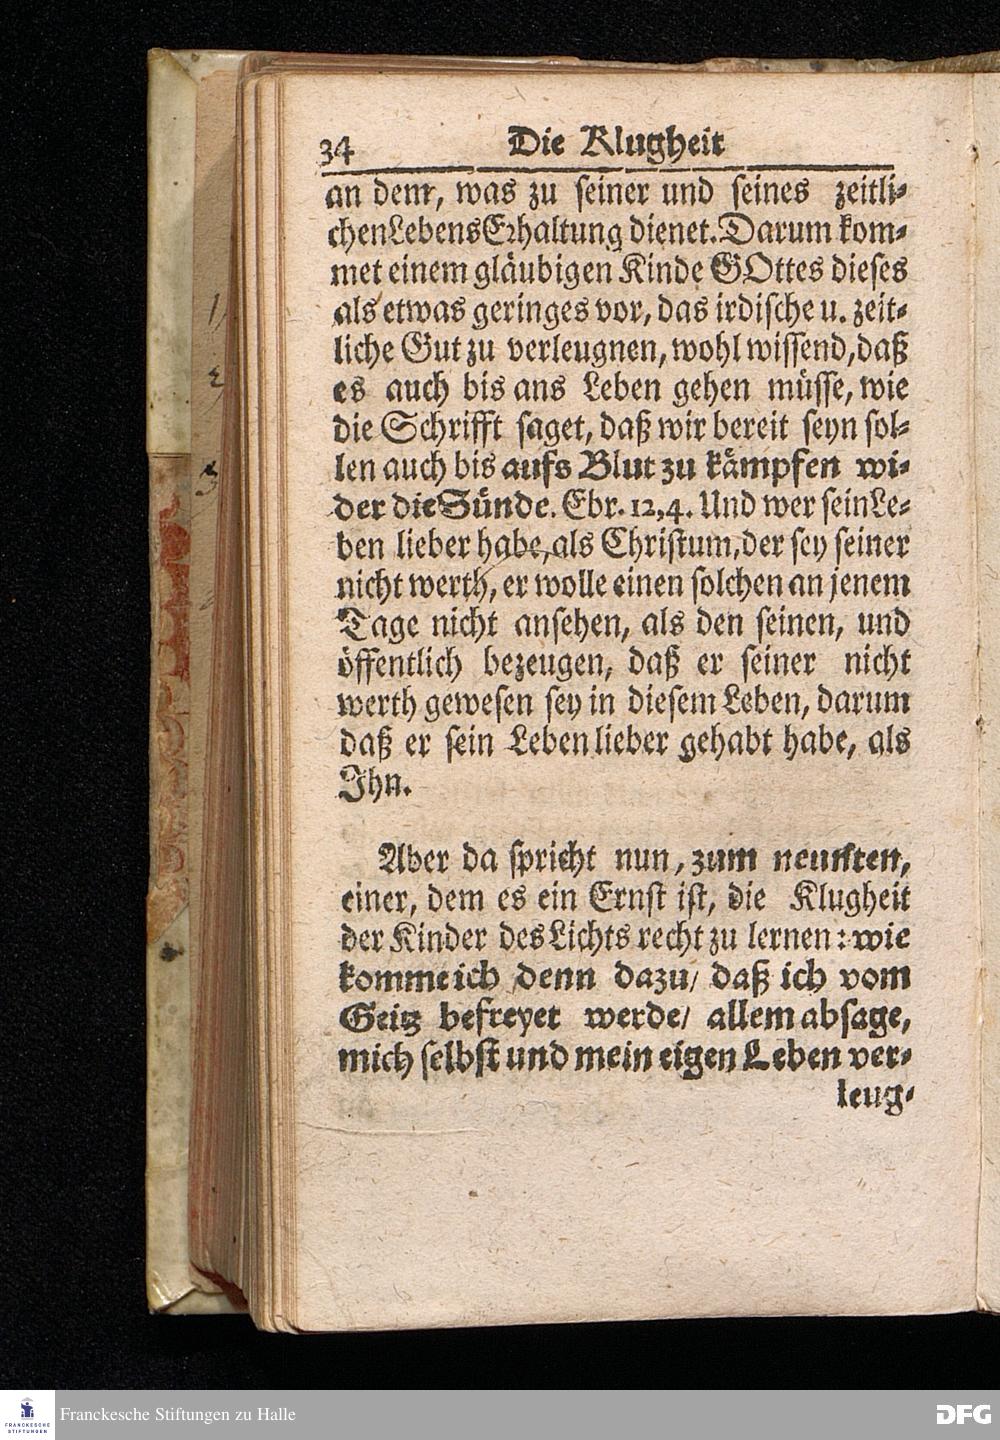 34 Die Klugheit
an dem, was zu seiner und seines zeitli-
chen Lebens Erhaltung dienet. Darum kom-
met einem gläubigen Kinde GOttes dieses
als etwas geringes vor, das irdische u. zeit-
liche Gut zu verleugnen, wohl wissend, daß
es auch bis ans Leben gehen müsse, wie
die Schrifft saget, daß wir bereit seyn sol-
len auch bis aufs Blut zu kämpfen wi-
der die Sünde. Ebr. 12,4. Und wer sein Le-
ben lieber habe, als Christum, der sey seiner
nicht werth, er wolle einen solchen an jenem
Tage nicht ansehen, als den seinen, und
öffentlich bezeugen, daß er seiner nicht
werth gewesen sey in diesem Leben, darum
daß er sein Leben lieber gehabt habe, als
Ihn.
Aber da spricht nun, zum neunten,
einer, dem es ein Ernst ist, die Klugheit
der Kinder des Lichts recht zu lernen: wie
komme ich denn dazu/ daß ich vom
Geitz befreyet werde/ allem absage,
mich selbst und mein eigen Leben ver-
leug-
FRANCKESCHE
STIFTUNGEN
Franckesche Stiftungen zu Halle
DFG